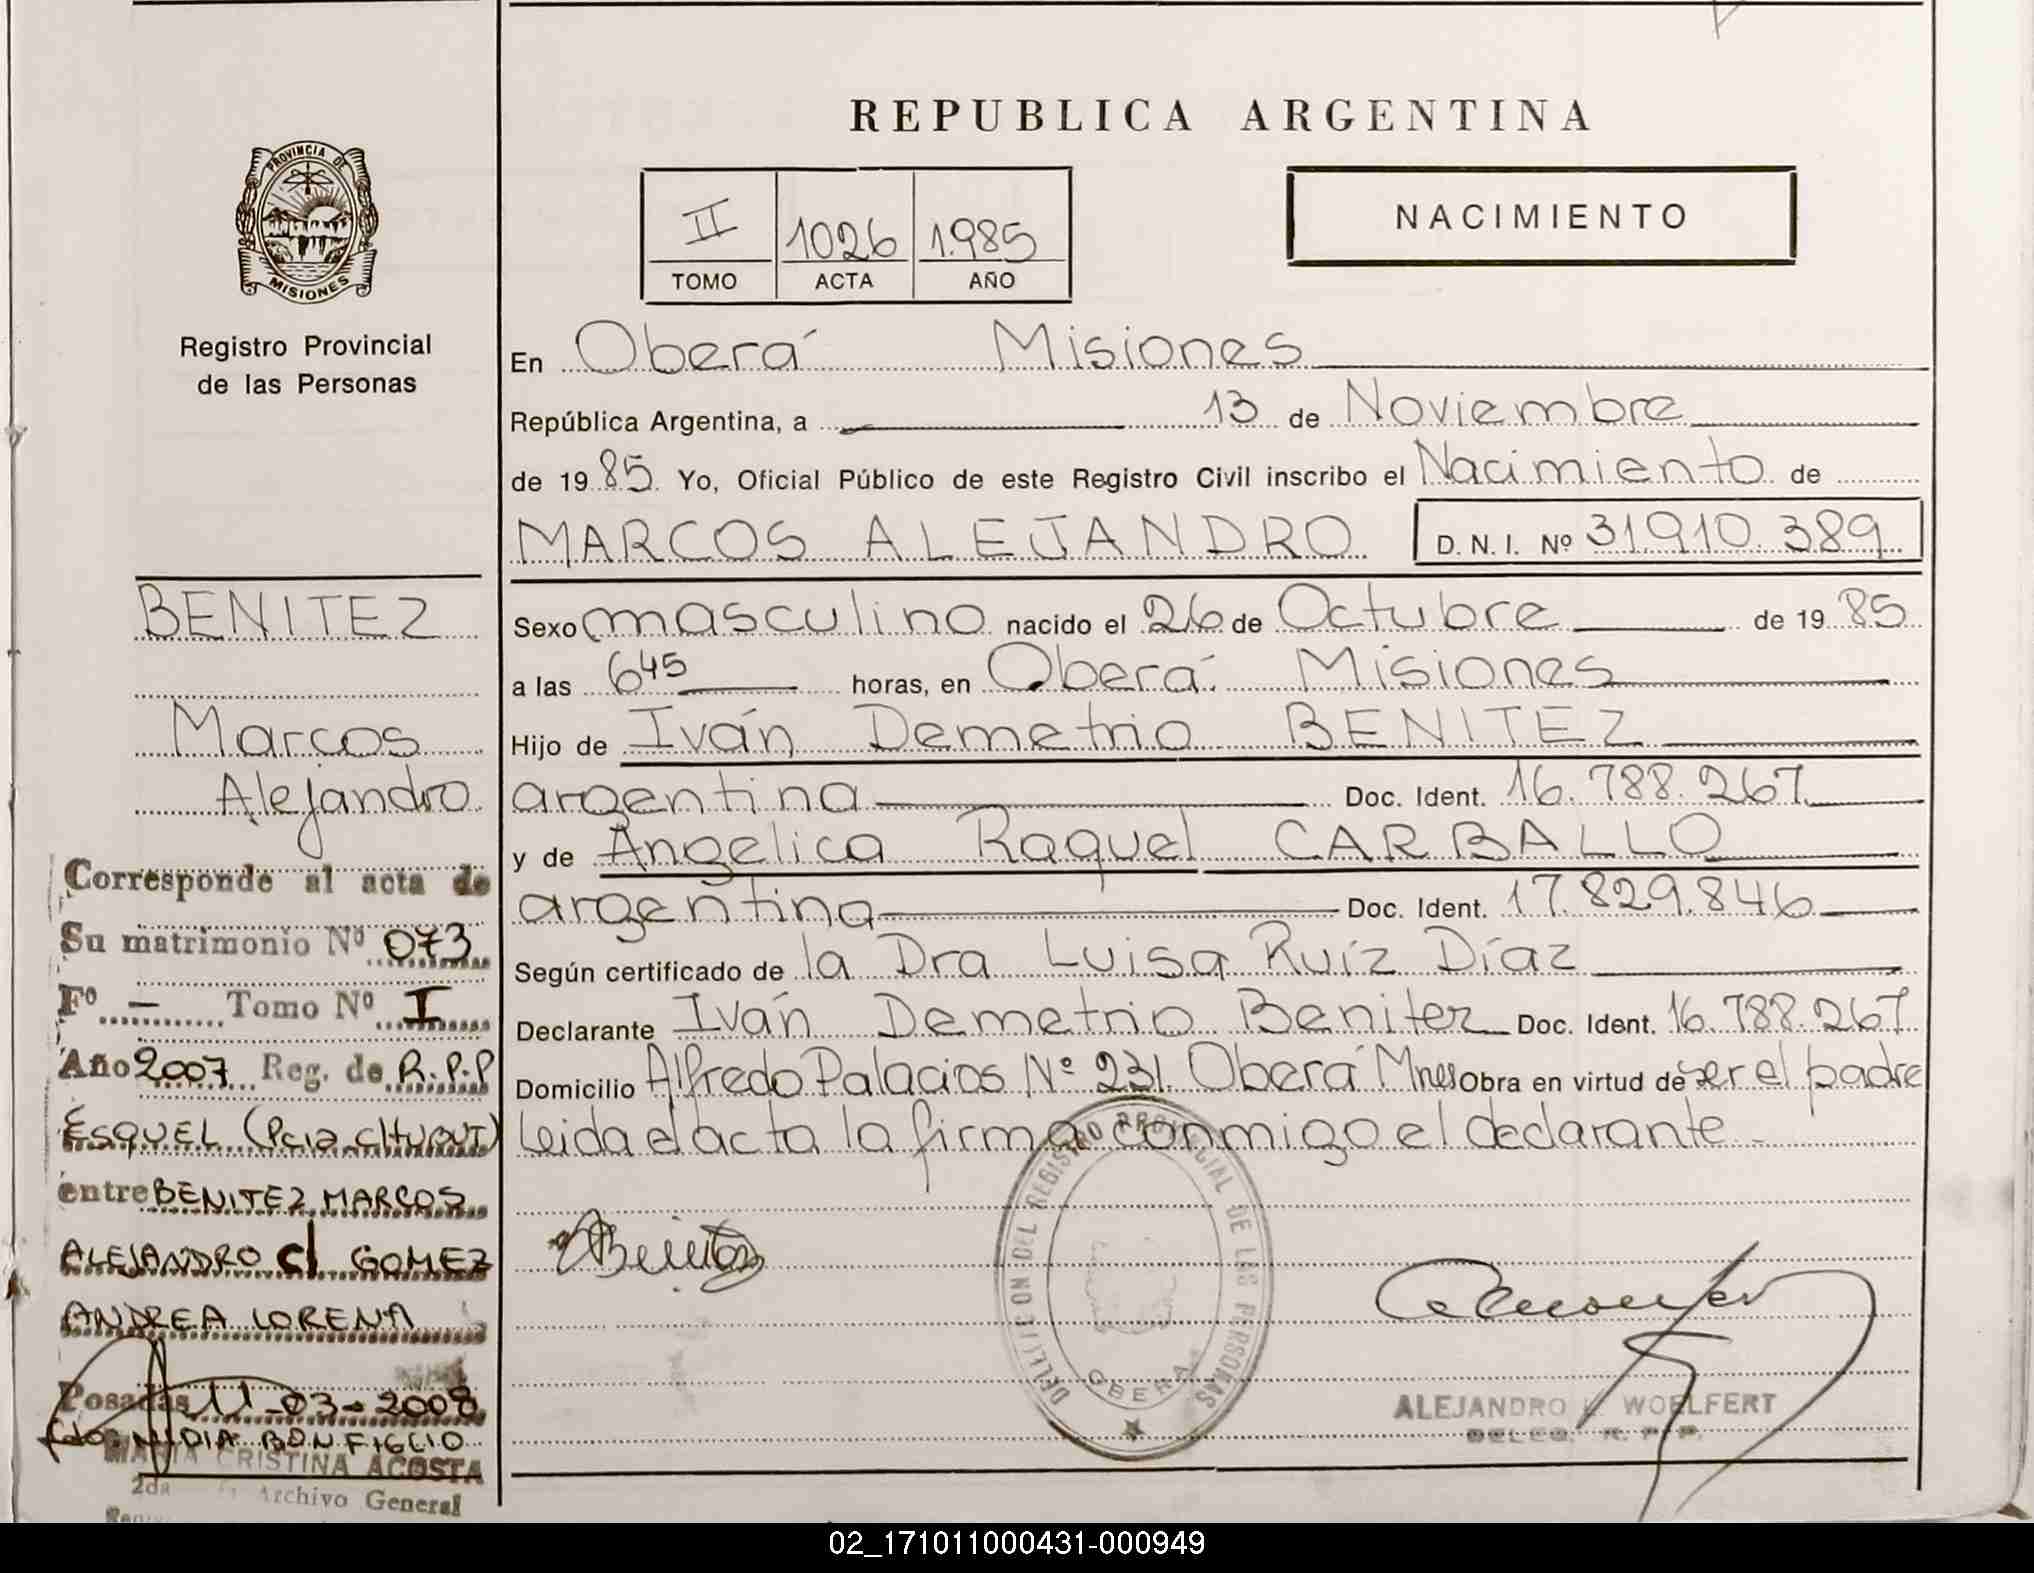 REPUBLICA ARGENTINA
PROVINCIA DE
MISIONES
Registro Provincial
de las Personas
II 1026 1.985
TOMO ACTA AÑO
NACIMIENTO
En Oberá Misiones
República Argentina, a 13 de Noviembre
de 1985 Yo, Oficial Público de este Registro Civil inscribo el Nacimiento de
MARCOS ALEJANDRO D. N. I. Nº 31.910.389
Sexo masculino nacido el 26 de Octubre de 1985
a las 6 45 horas, en Oberá Misiones
Hijo de Iván Demetrio BENITEZ
argentina Doc. Ident. 16.788.267
y de Angelica Raquel CARBALLO
argentina Doc. Ident. 17.829.846
Según certificado de la Dra Luisa Ruíz Díaz
Declarante Iván Demetrio Benitez Doc. Ident. 16.788.267
Domicilio Alfredo Palacios Nº 231. Oberá Mnes Obra en virtud de ser el padre
Leida el acta la firma conmigo el declarante
BENITEZ
Marcos
Alejandro
Corresponde al acta de
Su matrimonio Nº 073
Fº — Tomo Nº I
Año 2007 Reg. de R.P.P
ESQUEL (Pcia CHUBUT)
entre BENITEZ MARCOS
ALEJANDRO C/ GOMEZ
ANDREA LORENA
Posadas 11-03-2008
NIDIA BONFIGLIO
MARIA CRISTINA ACOSTA
2da Archivo General
Benitez
REGISTRO PROVINCIAL DE LAS PERSONAS
OBERA
ALEJANDRO WOELFERT
R. P. P.
02_171011000431-000949